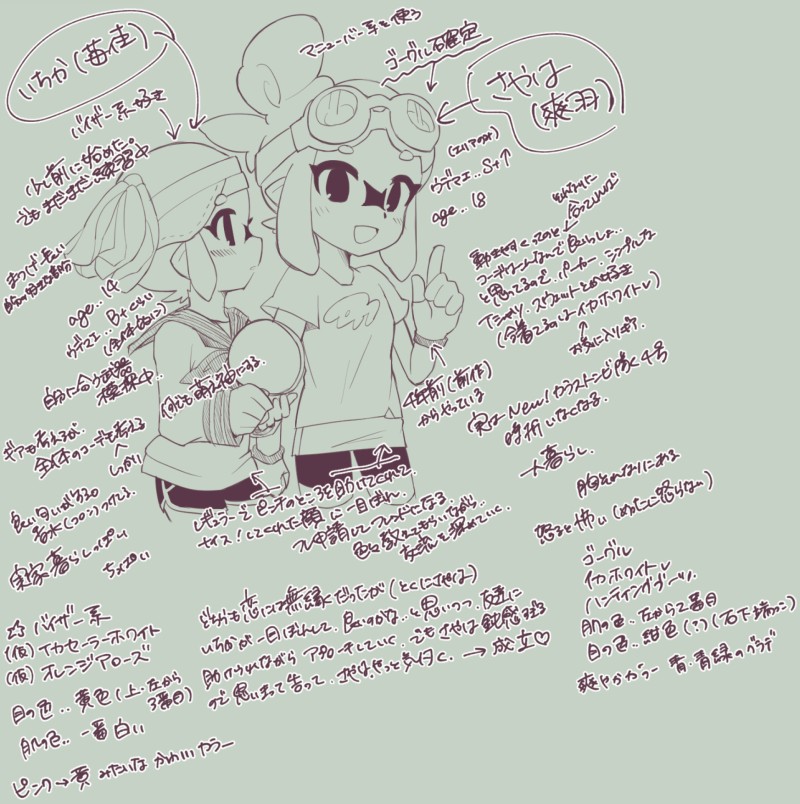 いちか(苺佳)
マニューバー系を使う
ゴーグル確定
さやは
(爽羽)
バイザー系好き
少し前に始めた。
でもまだまだ練習中
まつげ長い
age..14
ウデマエ..B+くらい
(全体的に)
自分に合う武器
模索中..
ギアも考えるが
全体のコーデも考える
しっかり
良い匂いがする。
香水(プロフ)つけてる。
実家暮らしっぽい
ちっぱい
(エリアのみ)
ウデマエ..S+↑
age..18
動きやすくってのと
コーデはよーわからんで良いっしょ..
と思ってるので、パーカー、シンプルな
Tシャツ、スウェットとかが好き
(今着てるのはイカホワイトレ)
お気に入りギア。
4年前(前作)
からやっている
実はNew!カラストンビ隊4号
時折いなくなる。
一人暮らし。
胸それなりにある
怒ると怖い(めったに怒らない)
何でも萌え袖にする。
レギュラーでピンチのところを助けてくれて、
ナイス!してくれた顔に一目ぼれ。
フレ申請してフレンドになる。
色々教えてもらいながら..
友情を深めていく。
どちらも恋には無縁だったが(とくにさやは)
いちかが一目ぼれして、良いのかな..と思いつつ、友達に
助けられながらアプローチしていく..でもさやは鈍感すぎる
ので思いきって告って、さやは、やっと気付く.→成立♡
バイザー系
(仮)イカセーラーホワイト
(仮)オレンジアローズ
目の色..黄色(上、左から
3番目)
肌の色..一番白い
ピンク→黄みたいなかわいいカラー
ゴーグル
イカホワイトレ
ハンティングブーツ。
肌の色..左から2番目
目の色..紺色(?)(右下端っこ)
爽やかカラー 青・青緑のグラデ